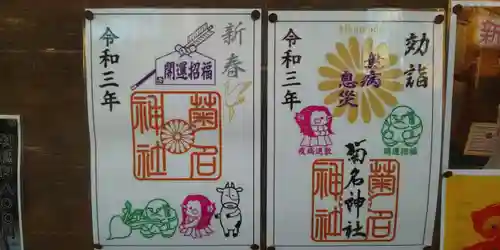 新春
開運招福
令和三年
菊名
神社
初詣
無病
息災
令和三年
疫病退散
開運招福
菊名神社
菊名
神社